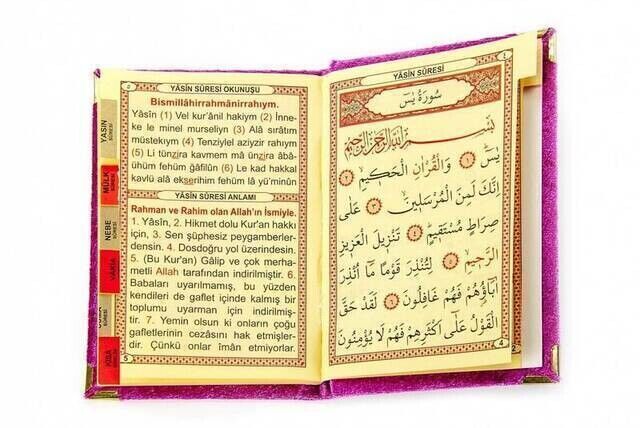 YÂSİN SÛRESİ OKUNUŞU
Bismillâhirrahmânirrahym.
Yâsîn (1) Vel kur'ânil hakiym (2) İnne-
ke le minel murseliyn (3) Alâ sırâtım
müstekıym (4) Tenziylel aziyzir rahıym
(5) Li tünzira kavmem mâ ünzira âbâ-
ühüm fehüm ğâfilûn (6) Le kad hakkal
kavlü alâ ekserihim fehüm lâ yü'minûn
YÂSİN SÛRESİ ANLAMI
Rahman ve Rahim olan Allah'ın İsmiyle.
1. Yâsîn, 2. Hikmet dolu Kur'an hakkı
için, 3. Sen şüphesiz peygamberler-
densin. 4. Dosdoğru yol üzerindesin.
5. (Bu Kur'an) Gâlip ve çok merha-
metli Allah tarafından indirilmiştir. 6.
Babaları uyarılmamış, bu yüzden
kendileri de gaflet içinde kalmış bir
toplumu uyarman için indirilmiş-
tir. 7. Yemin olsun ki onların çoğu
gafletlerinin cezasını hak etmişler-
dir. Çünkü onlar îmân etmiyorlar.
5
YASİN
SÛRESİ
MÜLK
SÛRESİ
NEBE
SÛRESİ
VAKIA
KISA
YÂSİN SÛRESİ
سُورَةُ يٰسٓ
بِسْمِ اللّٰهِ الرَّحْمٰنِ الرَّحِيمِ
يٰسٓ ۝١ وَالْقُرْاٰنِ الْحَكِيمِ ۝٢
اِنَّكَ لَمِنَ الْمُرْسَلِينَ ۝٣ عَلٰى
صِرَاطٍ مُسْتَقِيمٍ ۝٤ تَنْزِيلَ الْعَزِيزِ
الرَّحِيمِ ۝٥ لِتُنْذِرَ قَوْمًا مَٓا اُنْذِرَ
اٰبَٓاؤُهُمْ فَهُمْ غَافِلُونَ ۝٦ لَقَدْ حَقَّ
الْقَوْلُ عَلٰٓى اَكْثَرِهِمْ فَهُمْ لَا يُؤْمِنُونَ
4
2